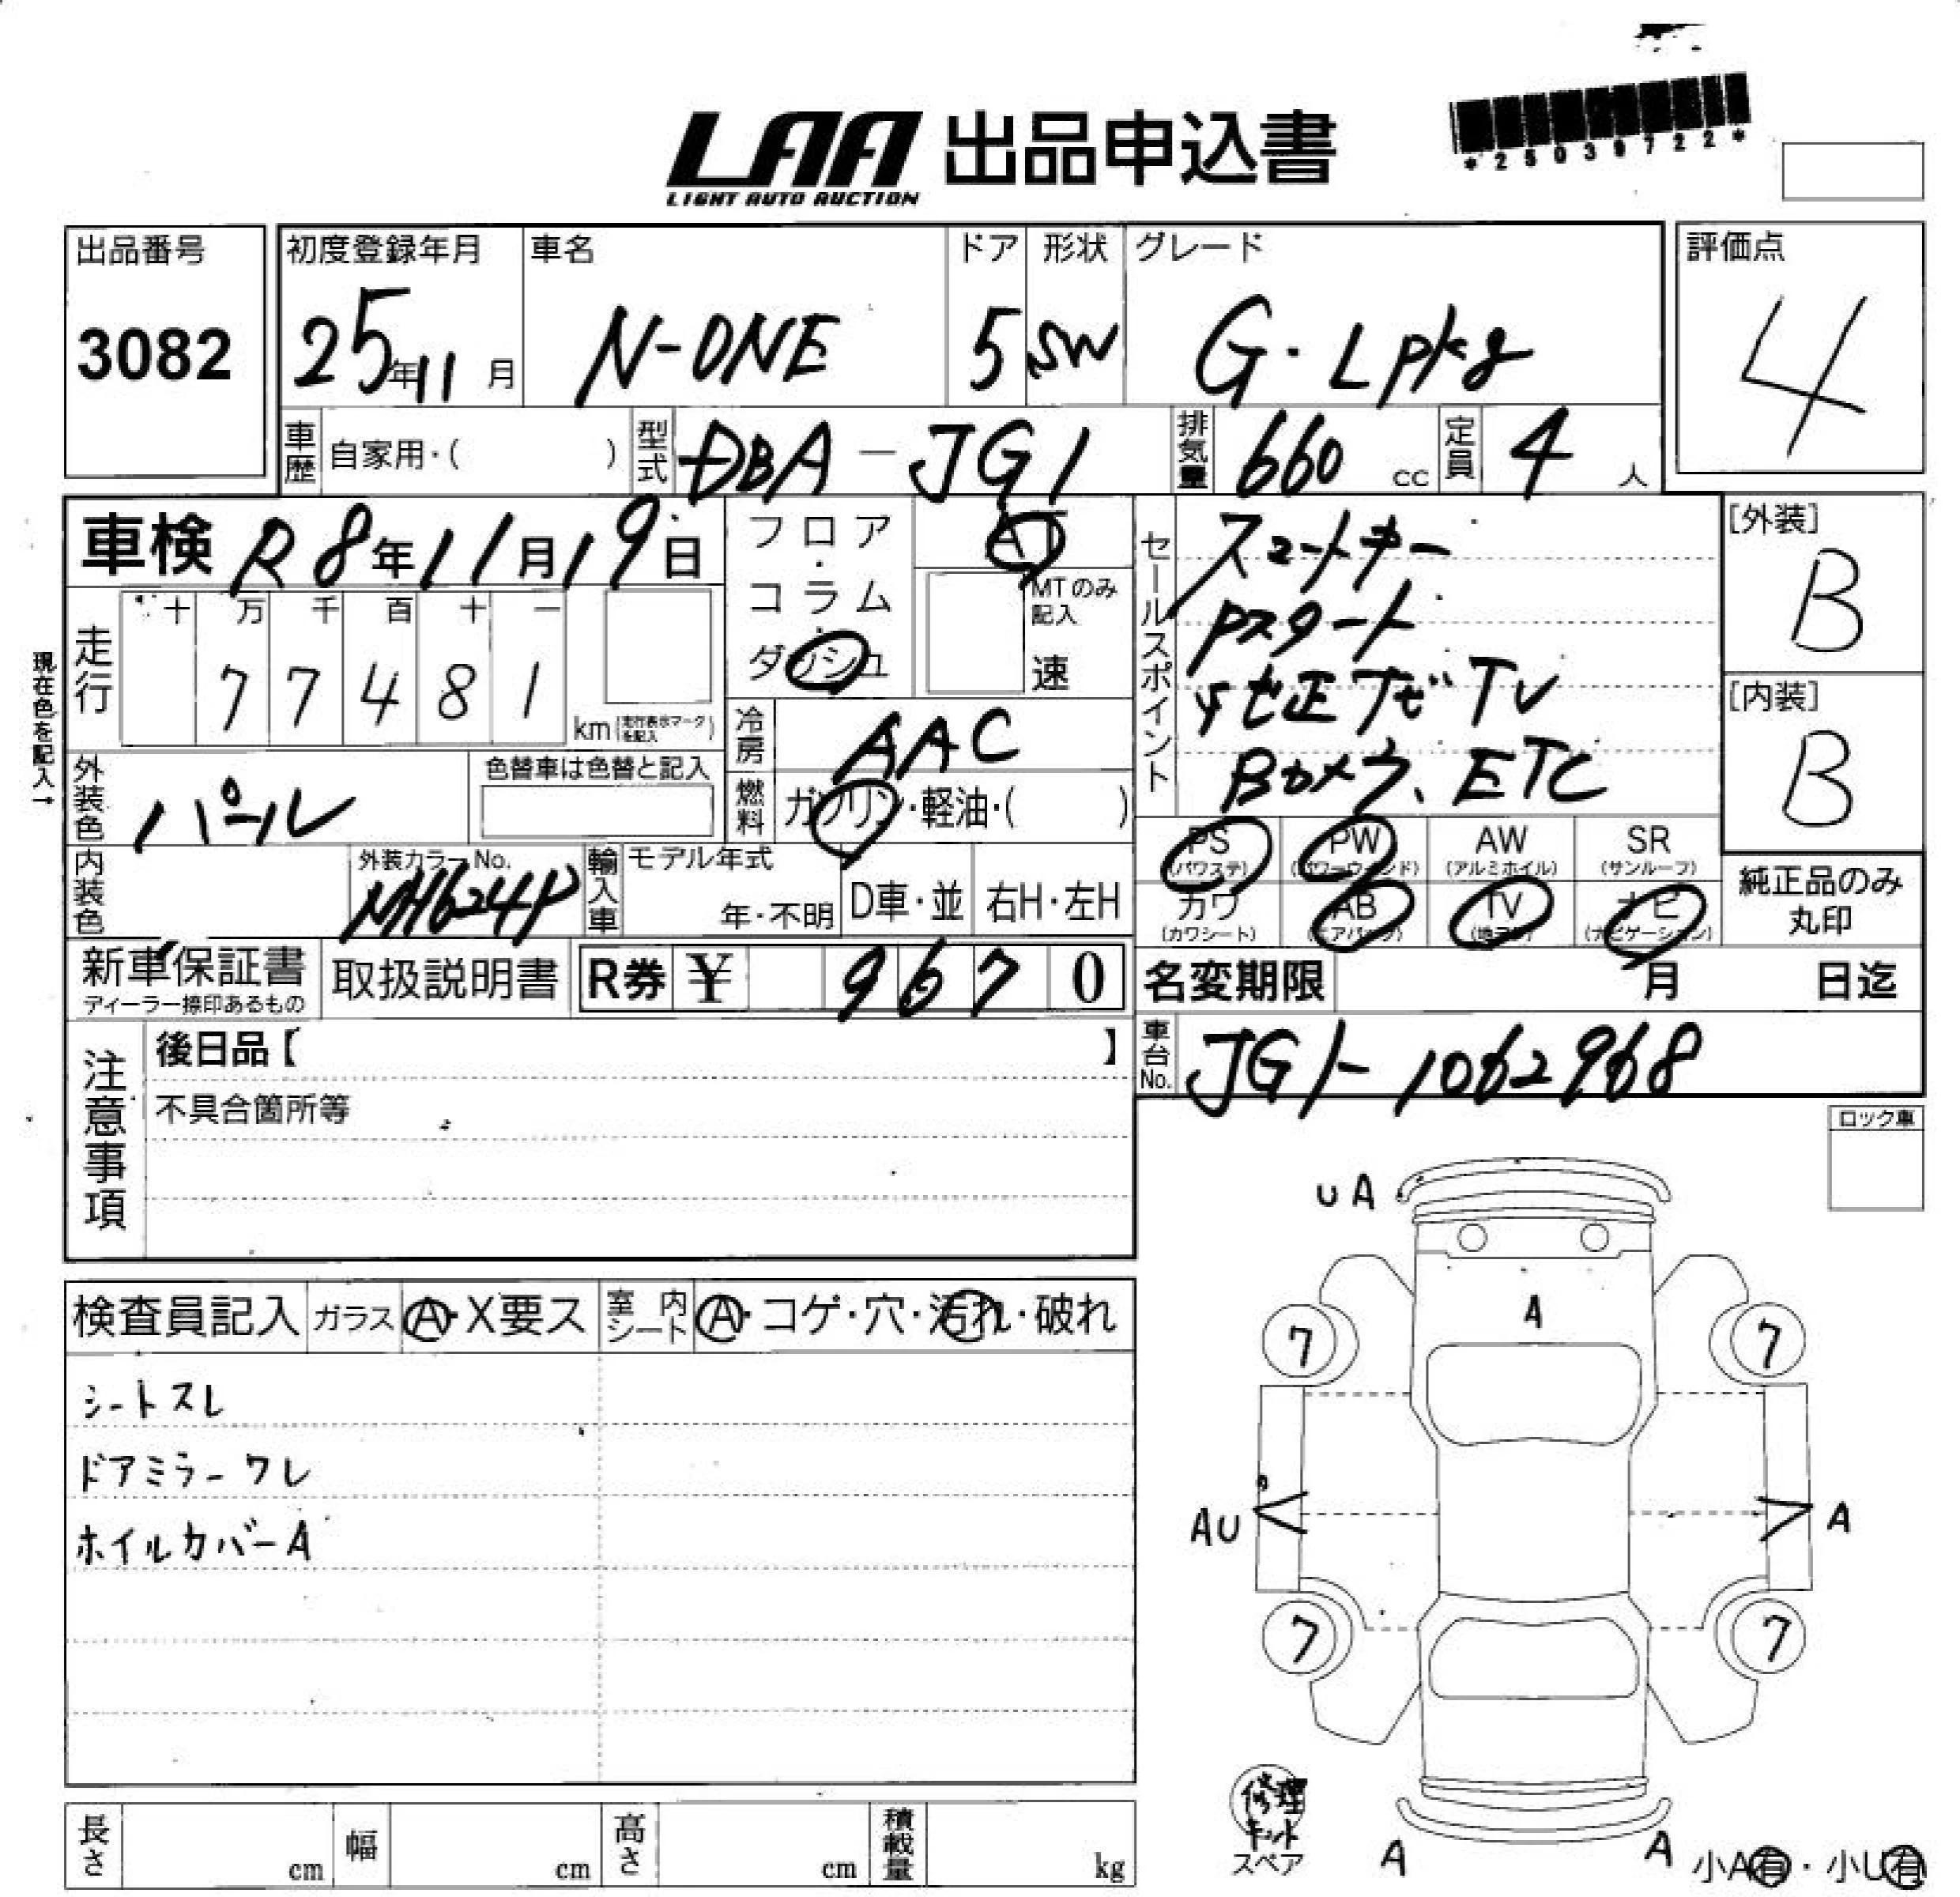 LAA 出品申込書
LIGHT AUTO AUCTION
*25039722*
出品番号
3082
初度登録年月
25年11月
車名
N-ONE
ドア
5
形状
SW
グレード
G・Lpkg
評価点
4
車歴 自家用・( )
型式 DBA-JG1
排気量 660 cc
定員 4 人
車検 R8年11月19日
フロア・コラム・ダッシュ
AT
MTのみ記入
速
セールスポイント
スマートキー
Pスタート
純正ナビTV
Bカメラ、ETC
[外装]
B
[内装]
B
現在色を記入→
走行
十 万 千 百 十 一
7 7 4 8 1
km(走行表示マークを記入)
冷房 AAC
燃料 ガソリン・軽油・( )
外装色 パール
色替車は色替と記入
内装色
外装カラーNo.
NH624P
輸入車
モデル年式
年・不明
D車・並
右H・左H
PS (パワステ)
PW (パワーウィンド)
AW (アルミホイル)
SR (サンルーフ)
カワ (カワシート)
AB (エアバック)
TV (地デジ)
ナビ (ナビゲーション)
純正品のみ
丸印
新車保証書
ディーラー捺印あるもの
取扱説明書
R券 ¥ 9670
名変期限 月 日迄
注意事項
後日品【 】
不具合箇所等
車台No. JG1-1062968
ロック車
検査員記入
ガラス A・X要ス
室内シート A・コゲ・穴・汚れ・破れ
シートスレ
ドアミラーワレ
ホイルカバーA
UA
A
7
7
AU
A
7
7
修理キット
スペア
A
A
小A有・小U有
長さ cm
幅 cm
高さ cm
積載量 kg